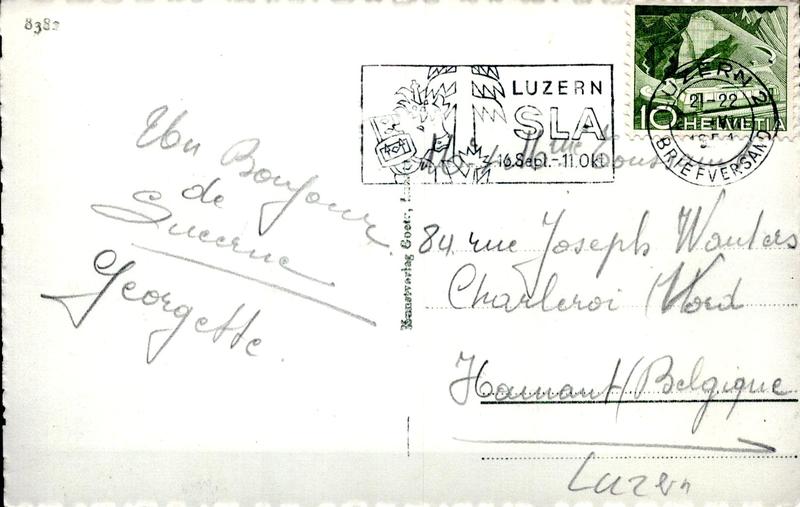 8382
Un Bonjour
de
Lucerne
Georgette.
Kunstverlag Goetz, Luz
LUZERN
SLA
16.Sept.-11.Okt.
HELVETIA
10
LUZERN 2
21-22
BRIEFVERSAND
Mme
84 rue Joseph Wauters
Charleroi (Nord
Hainaut/Belgique
Luzern